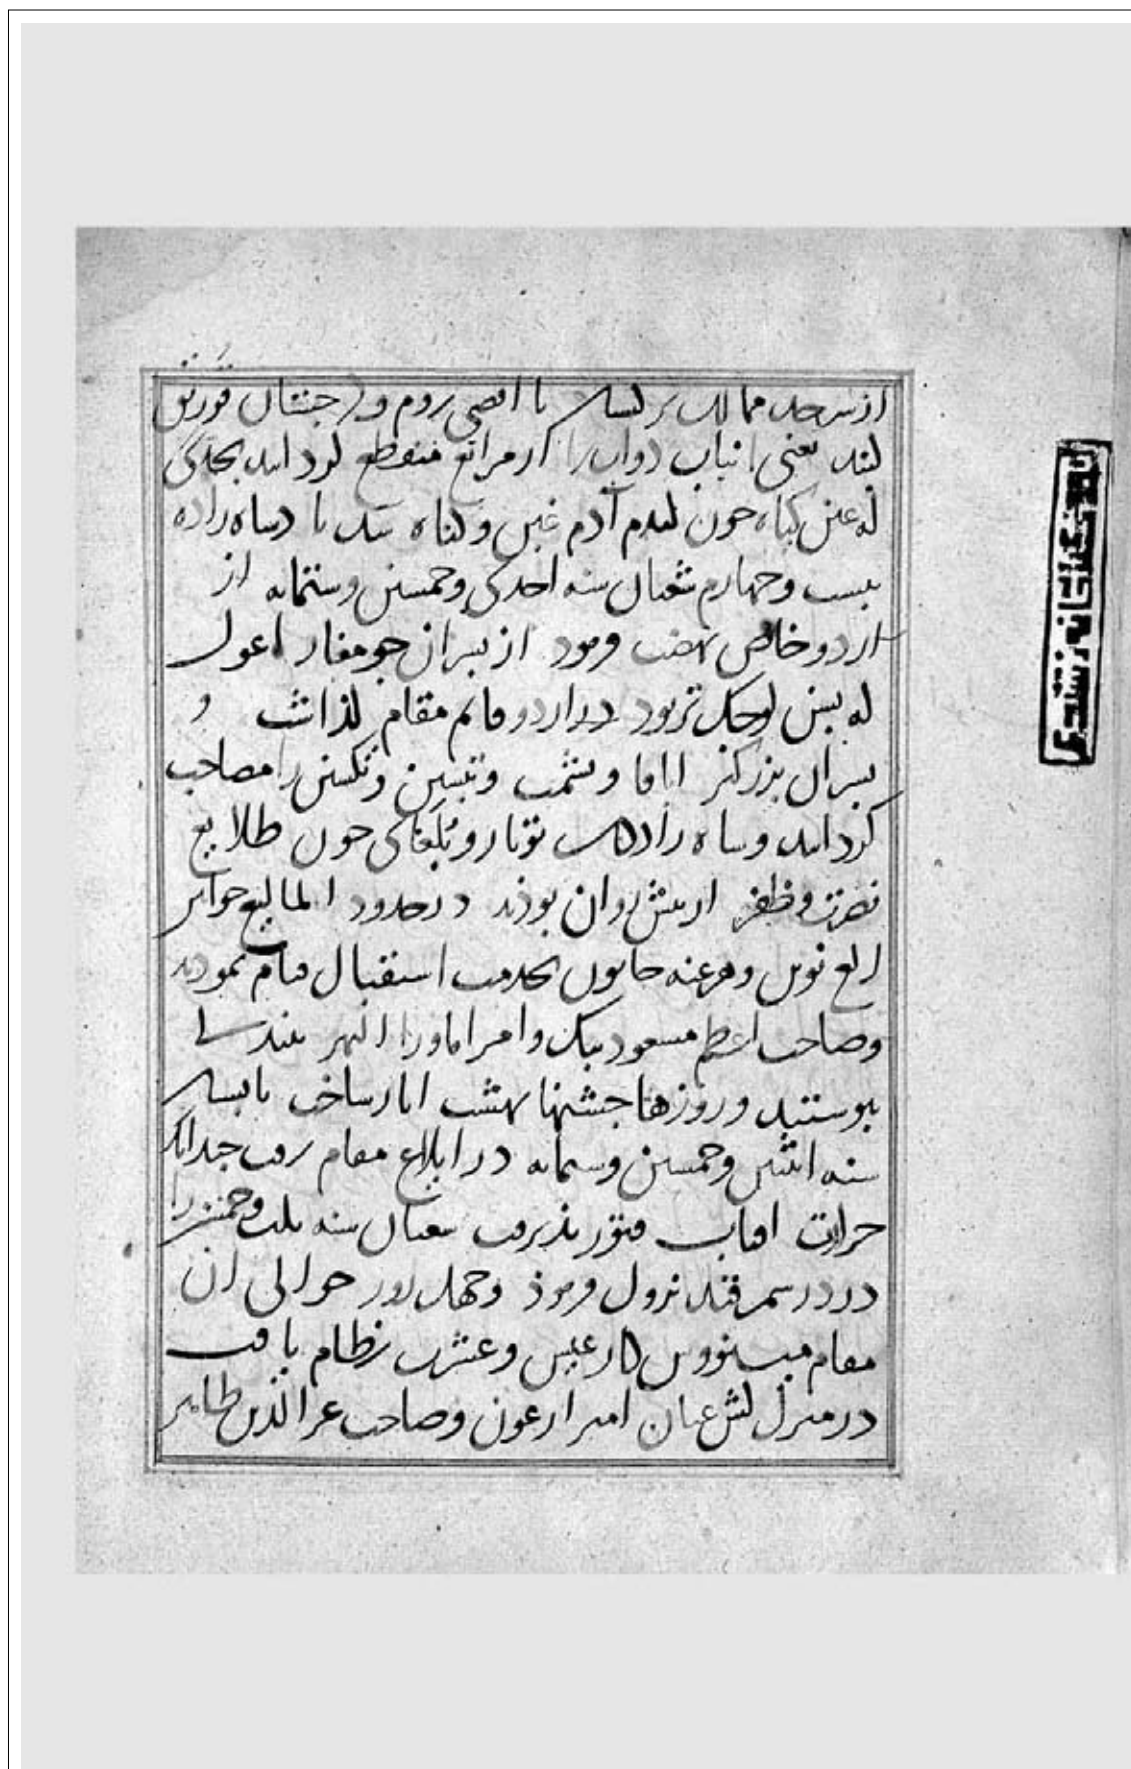 از سرحد ممالک ترکستان تا اقصی روم و ارجستان قوریق
کنند یعنی انیاب دواب را از مراتع منقطع گرداند بحدی
که عین گیاه چون گندم آدم غبن و گناه شد تا دساه راده
بیست و چهارم شعبان سنه احدی و خمسین و ستمائه از
اردو خاص نهضت فرمود از پسران جومغار اغول
که بسن کوچک‌تر بود در اردو قایم مقام گذاشت و
پسران بزرگتر اباقا و یشمت و تبسین و تکسین را مصاحب
گرداند و شاه زادگان توتار و بلغای چون طلایع
نصرت و ظفر از پیش روان بودند در حدود المالیغ خواتین
الغ نوین و هرغنه خاتون بخدمت استقبال قیام نمودند
و صاحب اعظم مسعود بیک و امراء ماوراء النهر ببندگی
پیوستند و روزها جشنها بهشت آسا ساخت تابستان
سنه اثنین و خمسین و ستمائه در ایلاغ مقام رفت چندانک
حرارت آفتاب فتور پذیرفت شعبان سنه ثلث و خمسین را
در در سمرقند نزول فرمود و چهل روز حوالی آن
مقام مینووش کار عیش و عشرت نظام یافت
در منزل کش عیان امیر ارغون و صاحب عز الدین طاهر